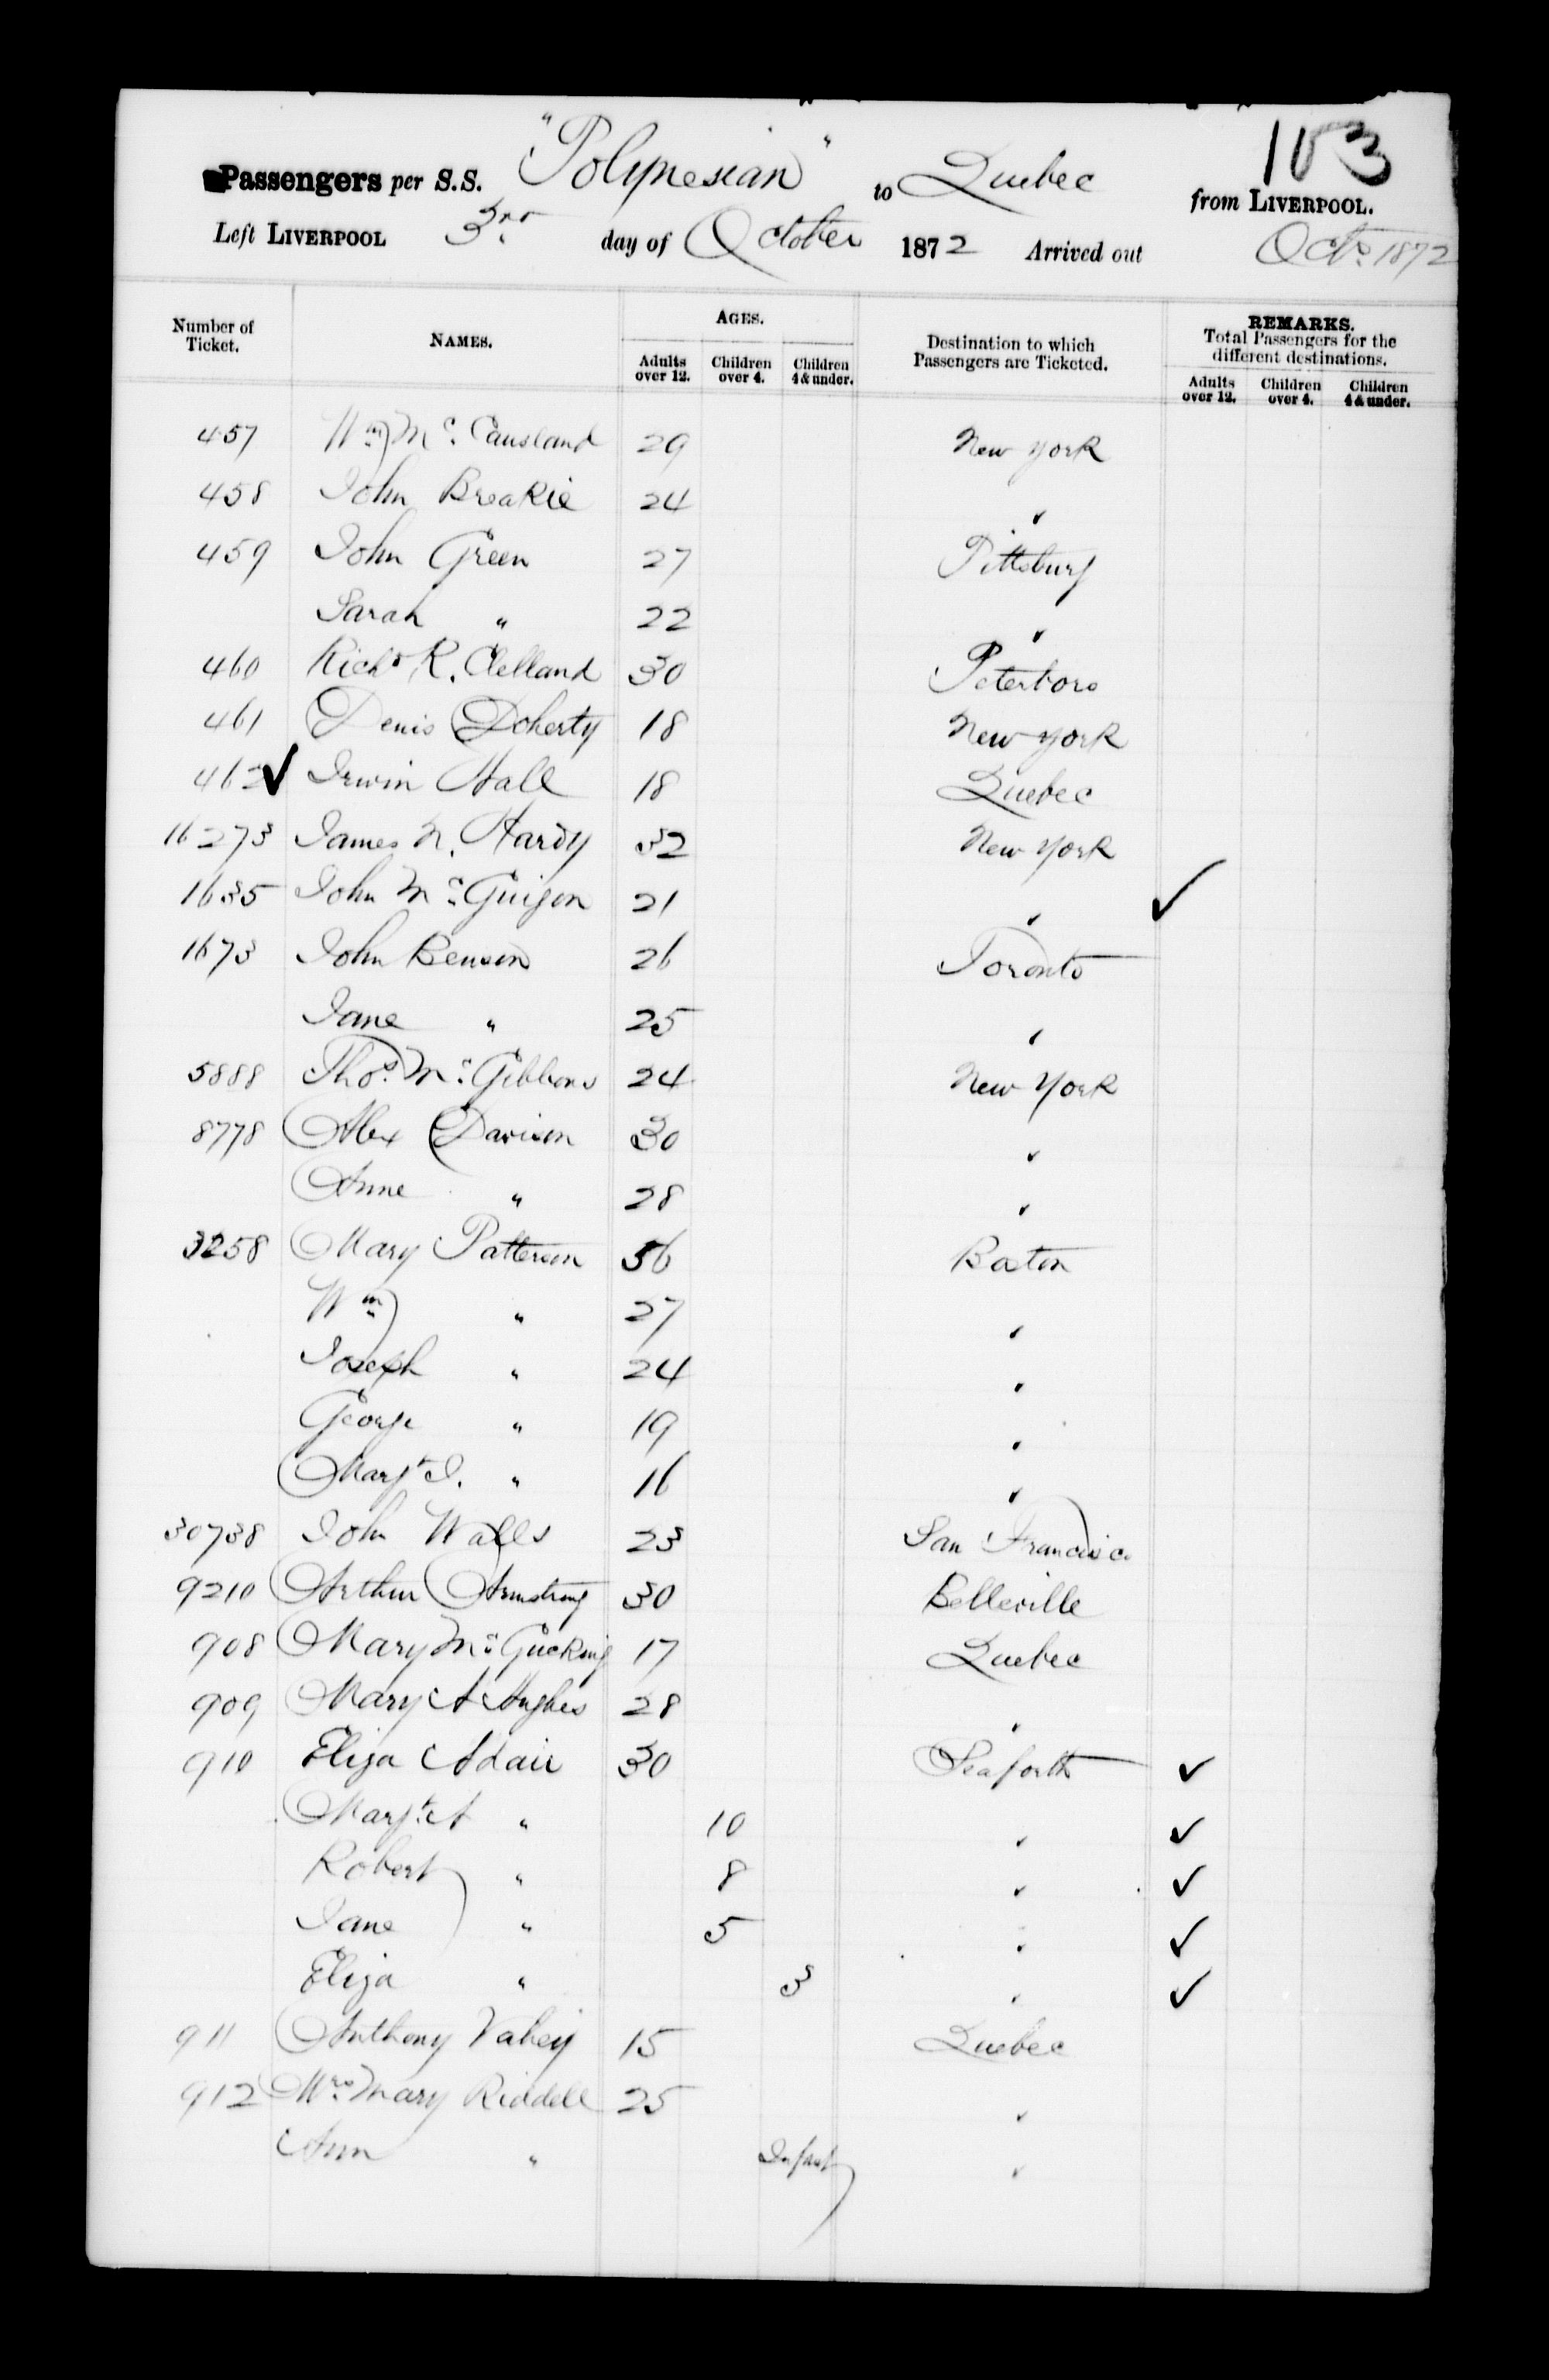 103
Passengers per S.S. "Polynesian" to Quebec from LIVERPOOL.
Left LIVERPOOL 3rd day of October 1872 Arrived out Octr 1872
Number of Ticket. NAMES. AGES. Destination to which Passengers are Ticketed. REMARKS. Total Passengers for the different destinations.
Adults over 12. Children over 4. Children 4 & under. Adults over 12. Children over 4. Children 4 & under.
457 Wm Mc Causland 29 New York
458 John Breakie 24 "
459 John Green 27 Pittsburg
Sarah " 22 "
460 Richd R. Clelland 30 Peterboro
461 Denis Doherty 18 New York
462 ✓ Irwin Hall 18 Quebec
16273 James N. Hardy 32 New York
1635 John Mc Guigon 21 " ✓
1673 John Benson 26 Toronto
Jane " 25 "
5888 Thos Mc Gibbons 24 New York
8778 Alex Davison 30 "
Anne " 28 "
3258 Mary Patterson 56 Boston
Wm " 27 "
Joseph " 24 "
George " 19 "
Margt J. " 16 "
30738 John Walls 23 San Francisco
9210 Arthur Armstrong 30 Belleville
908 Mary Mc 17 Quebec
909 Mary A Hughes 28 "
910 Eliza Adair 30 Seaforth ✓
Margt A " 10 " ✓
Robert " 8 " ✓
Jane " 5 " ✓
Eliza " 3 " ✓
911 Anthony Vahey 15 Quebec
912 Mrs Mary Riddell 25 "
Ann " Infant "